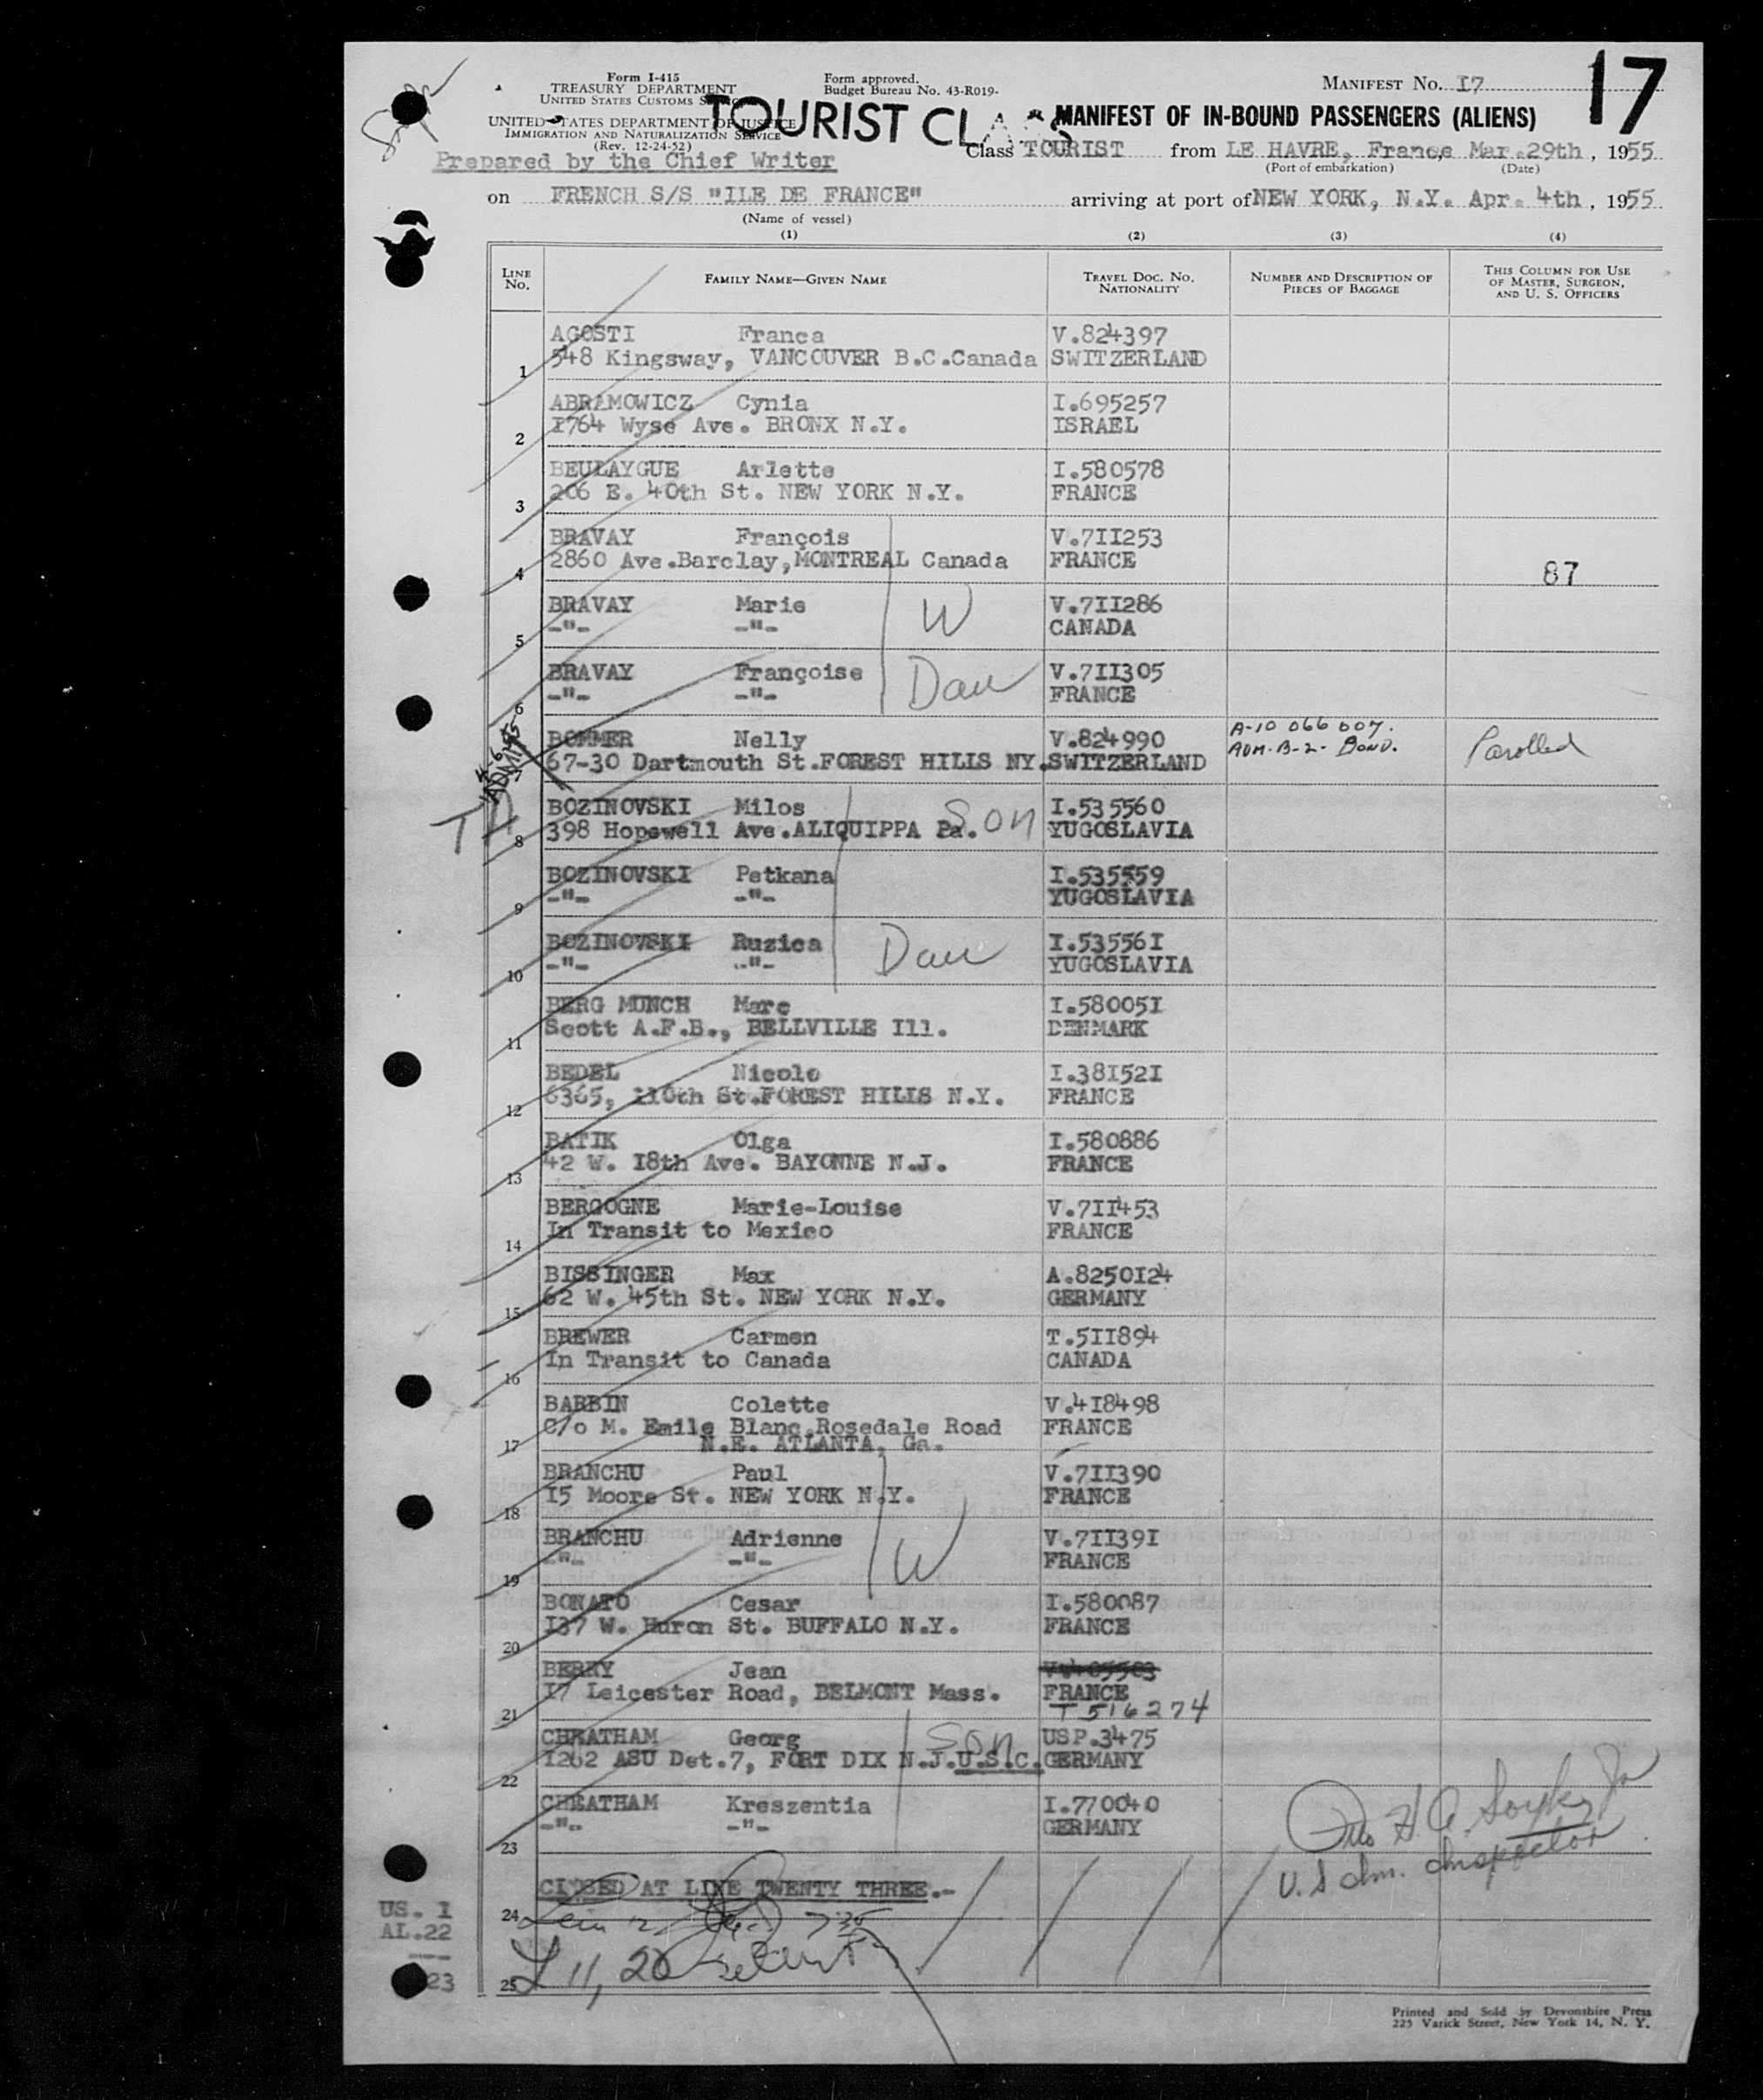 Form I-415
TREASURY DEPARTMENT
UNITED STATES CUSTOMS SERVICE
UNITED STATES DEPARTMENT OF JUSTICE
IMMIGRATION AND NATURALIZATION SERVICE
(Rev. 12-24-52)
Prepared by the Chief Writer
Form approved.
Budget Bureau No. 43-R019-
TOURIST CLASS
MANIFEST No. I7
17
MANIFEST OF IN-BOUND PASSENGERS (ALIENS)
Class TOURIST from LE HAVRE, France, Mar.29th, 1955
(Port of embarkation) (Date)
on FRENCH S/S "ILE DE FRANCE" arriving at port of NEW YORK, N.Y. Apr. 4th, 1955
(Name of vessel)
(1) (2) (3) (4)
LINE No. FAMILY NAME—GIVEN NAME TRAVEL DOC. No. NATIONALITY NUMBER AND DESCRIPTION OF PIECES OF BAGGAGE THIS COLUMN FOR USE OF MASTER, SURGEON, AND U. S. OFFICERS
AGOSTI Franca V.824397
1 548 Kingsway, VANCOUVER B.C.Canada SWITZERLAND
ABRAMOWICZ Cynia I.695257
2 I764 Wyse Ave. BRONX N.Y. ISRAEL
BEULAYGUE Arlette I.580578
3 206 E. 40th St. NEW YORK N.Y. FRANCE
BRAVAY François V.7II253
4 2860 Ave.Barclay,MONTREAL Canada FRANCE 87
BRAVAY Marie W V.7II286
5 -"- -"- CANADA
BRAVAY Françoise Dau V.7II305
6 -"- -"- FRANCE
BOMMER Nelly V.824990 A-10 066 007. Parolled
7 67-30 Dartmouth St.FOREST HILLS NY. SWITZERLAND ADM-B-2- BOND.
BOZINOVSKI Milos Son I.535560
8 398 Hopewell Ave.ALIQUIPPA Pa. YUGOSLAVIA
BOZINOVSKI Petkana I.535559
9 -"- -"- YUGOSLAVIA
BOZINOVSKI Ruzica Dau I.53556I
10 -"- -"- YUGOSLAVIA
BERG MUNCH Marc I.58005I
11 Scott A.F.B., BELLVILLE Ill. DENMARK
BEDEL Nicole I.38I52I
12 6365, 110th St.FOREST HILLS N.Y. FRANCE
BATIK Olga I.580886
13 42 W. I8th Ave. BAYONNE N.J. FRANCE
BERGOGNE Marie-Louise V.7II453
14 In Transit to Mexico FRANCE
BISSINGER Max A.8250I24
15 62 W. 45th St. NEW YORK N.Y. GERMANY
BREWER Carmen T.5II894
16 In Transit to Canada CANADA
BARBIN Colette V.4I8498
C/o M. Emile Blanc,Rosedale Road FRANCE
17 N.E. ATLANTA, Ga.
BRANCHU Paul V.7II390
18 I5 Moore St. NEW YORK N.Y. FRANCE
BRANCHU Adrienne W V.7II39I
19 -"- -"- FRANCE
BONATO Cesar I.580087
20 I37 W. Huron St. BUFFALO N.Y. FRANCE
BERRY Jean
I7 Leicester Road, BELMONT Mass. FRANCE
21 T 516274
CHEATHAM Georg Son USP.3475
22 I262 ASU Det.7, FORT DIX N.J.U.S.C. GERMANY
CHEATHAM Kreszentia I.770040
23 -"- -"- GERMANY
U.S Im. Inspector
CLOSED AT LINE TWENTY THREE.-
24
25 L 11, 20
US. 1
AL.22
---
23
Printed and Sold by Devonshire Press
225 Varick Street, New York 14, N. Y.